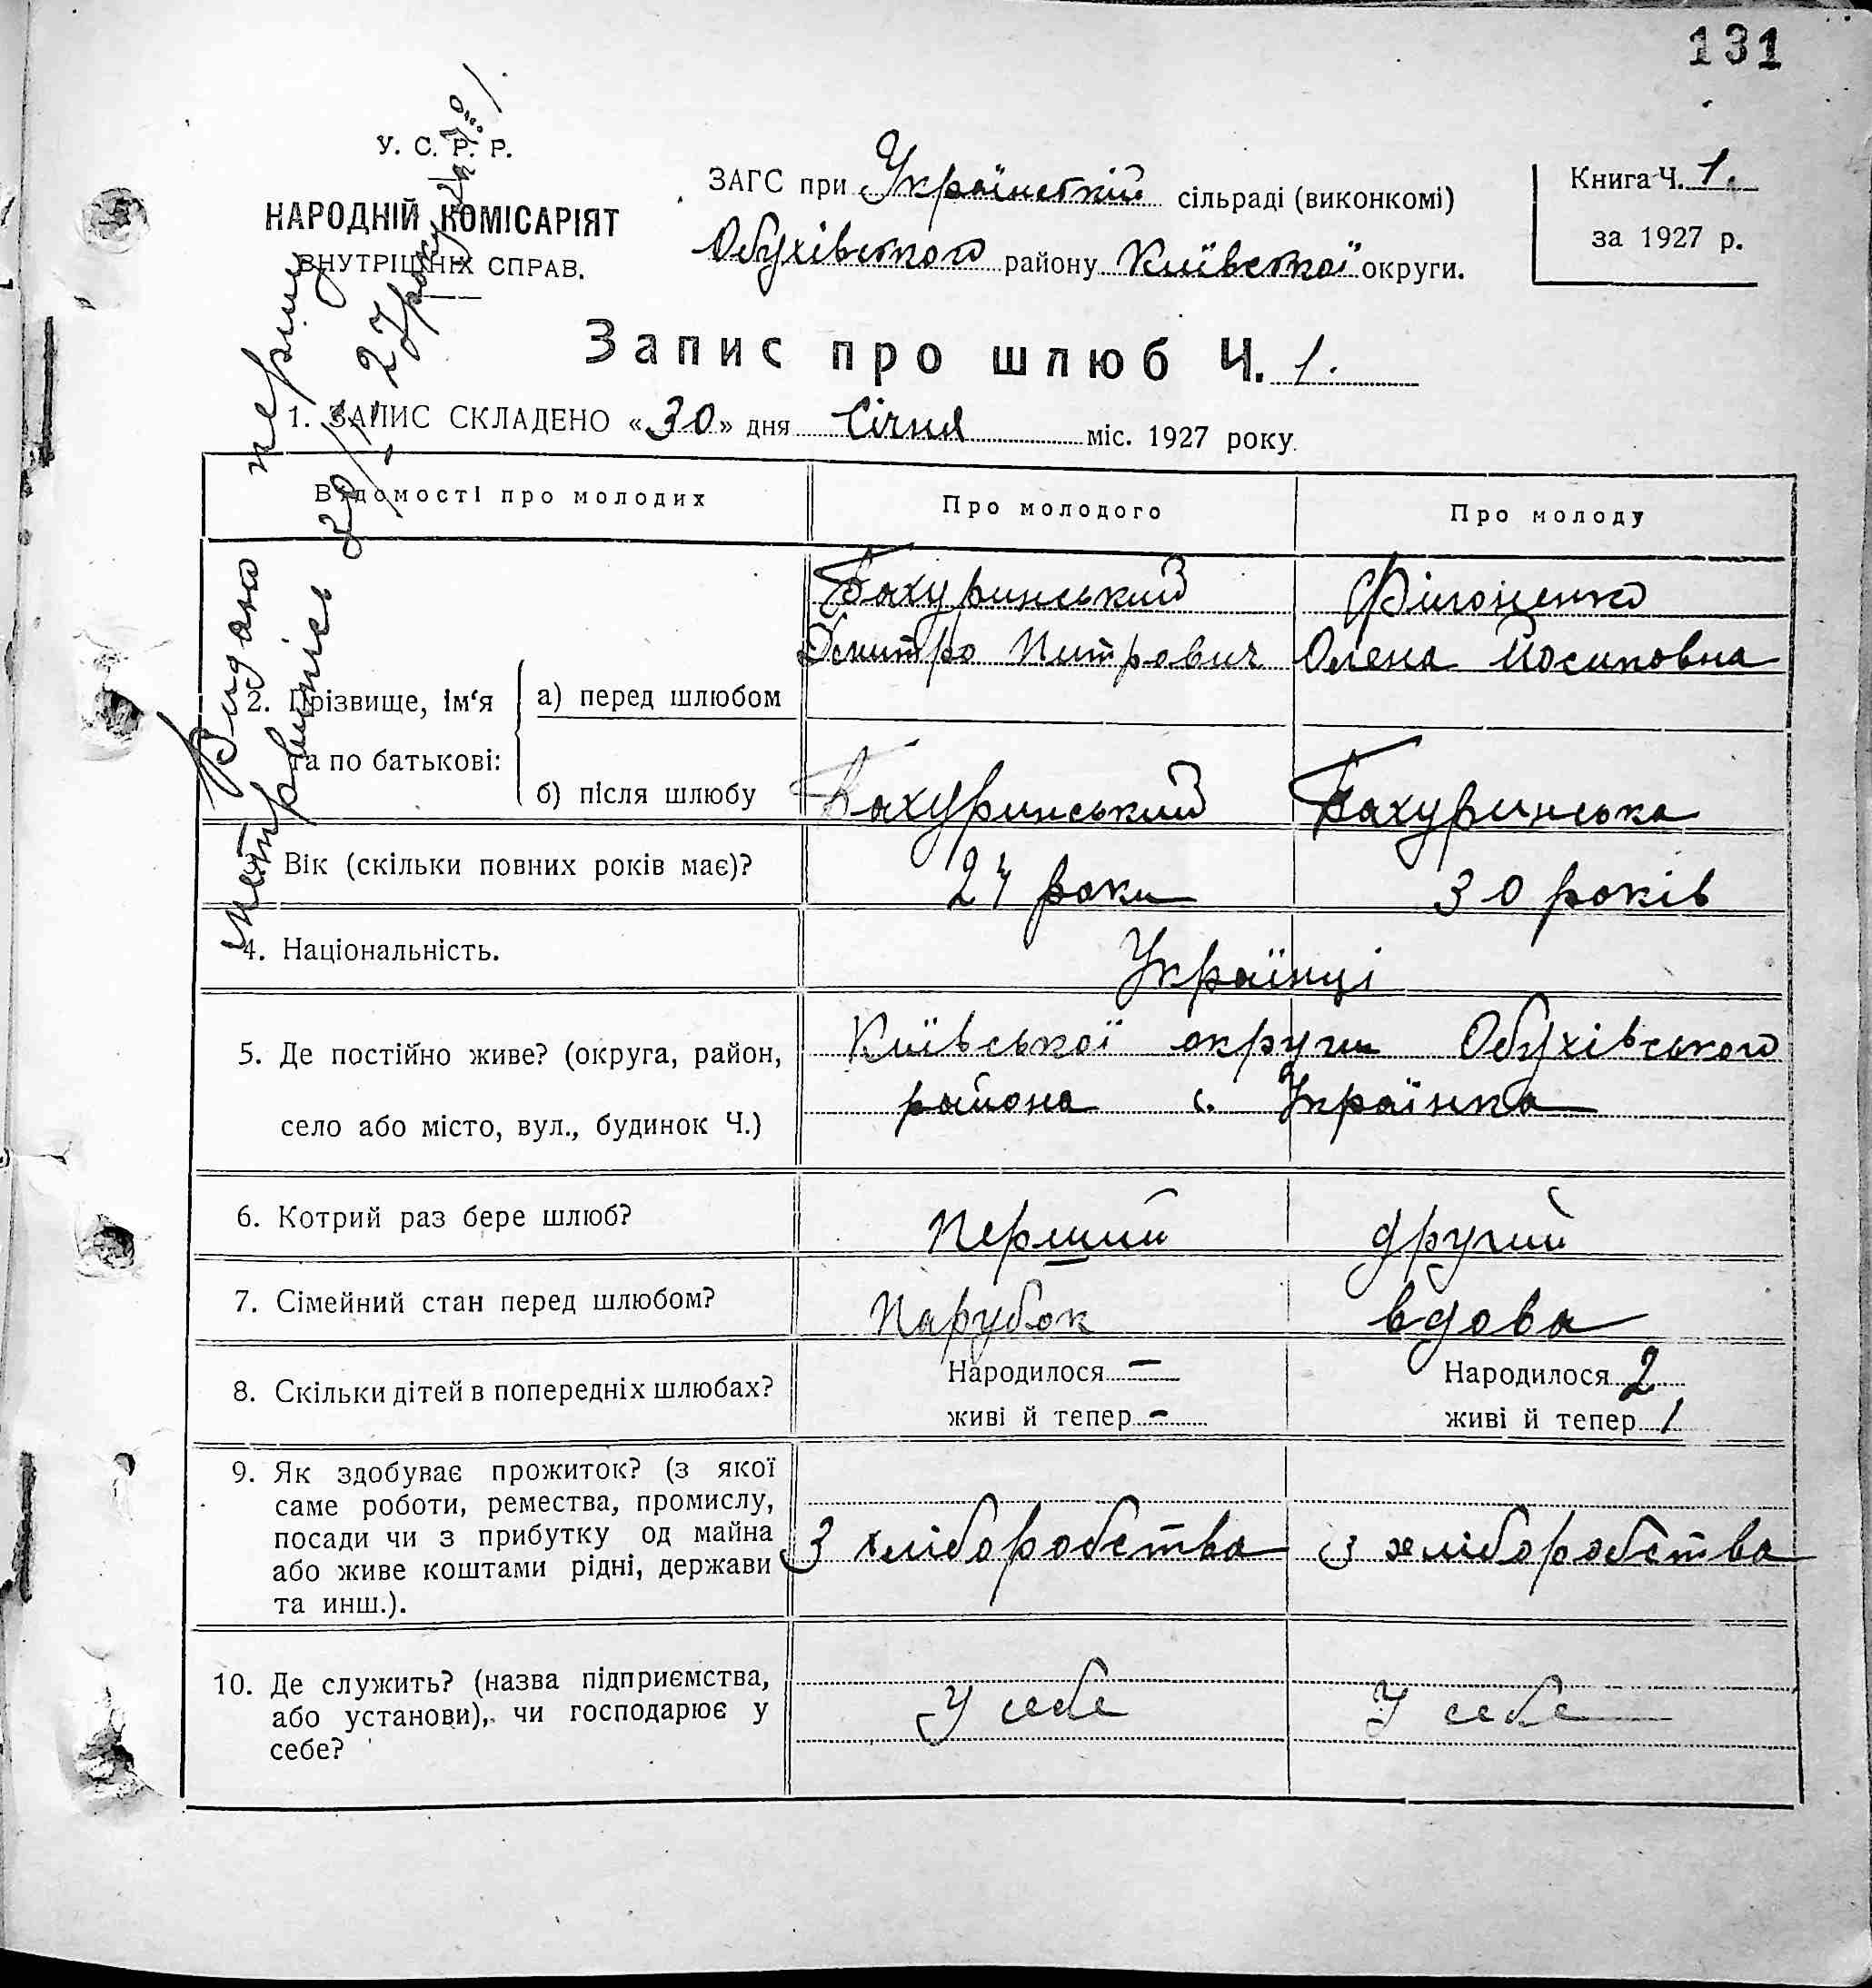 131
У. С. Р. Р.
НАРОДНІЙ КОМІСАРІЯТ
ВНУТРІШНІХ СПРАВ.
ЗАГС при Українській сільраді (виконкомі)
Обухівского району Київскої округи.
Книга Ч. 1.
за 1927 р.
Запис про шлюб Ч. 1.
1. ЗАПИС СКЛАДЕНО «30» дня Січня міс. 1927 року
Видано першу
30/I-27 року
Відомості про молодих
Про молодого
Про молоду
2. Прізвище, ім‘я та по батькові:
а) перед шлюбом
Бахуринський
Дмитро Митрович
Олена Йосиповна
б) після шлюбу
Бахуринський
Бахуринська
Вік (скільки повних років має)?
24 роки
30 років
4. Національність.
Українці
5. Де постійно живе? (округа, район,
село або місто, вул., будинок Ч.)
Київської округи Обухівського
района с. Українка
6. Котрий раз бере шлюб?
Перший
другий
7. Сімейний стан перед шлюбом?
Парубок
вдова
8. Скільки дітей в попередніх шлюбах?
Народилося —
живі й тепер -
Народилося 2
живі й тепер 1
9. Як здобуває прожиток? (з якої
саме роботи, ремества, промислу,
посади чи з прибутку од майна
або живе коштами рідні, держави
та инш.).
З хліборобства
з хліборобства
10. Де служить? (назва підприємства,
або установи), чи господарює у
себе?
У себе
У себе